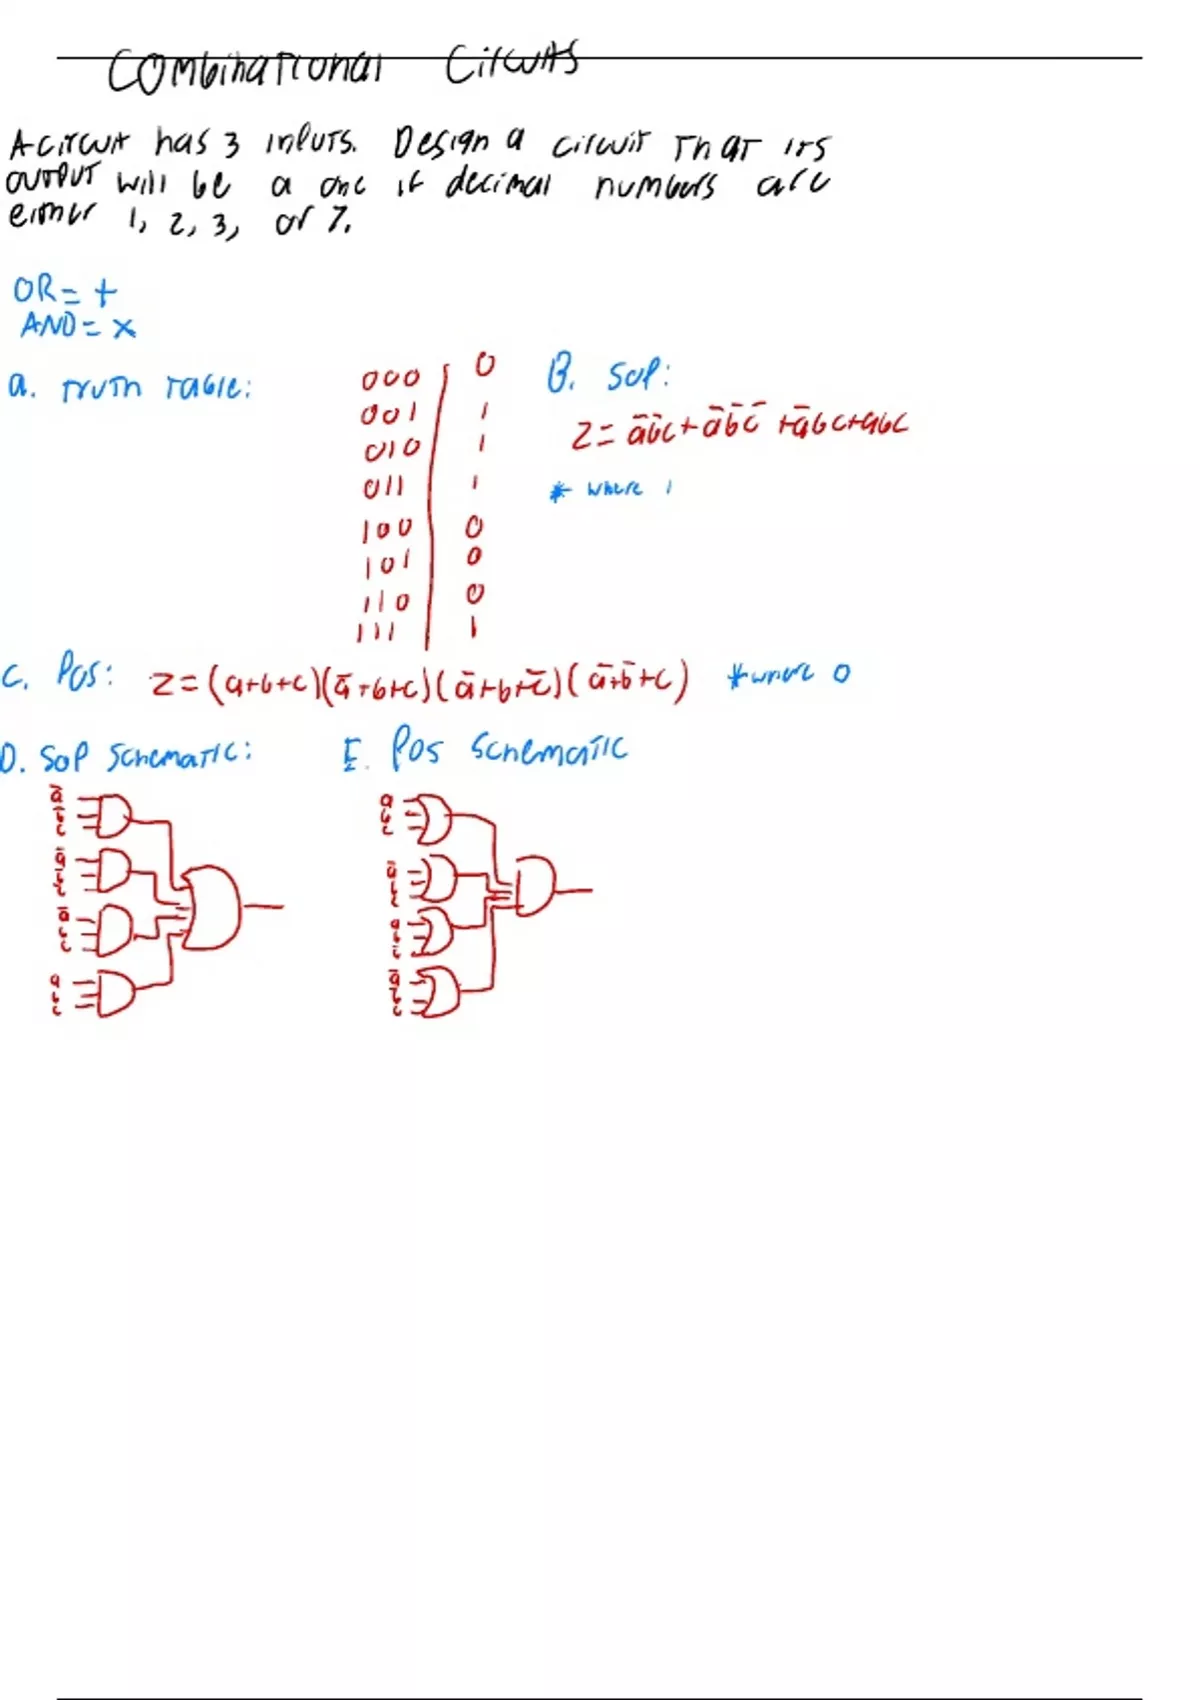 Combinational Circuits
A circuit has 3 inputs. Design a circuit that its
output will be a one if decimal numbers are
either 1, 2, 3, or 7.
OR = +
AND = x
a. Truth Table:
000 | 0
001 | 1
010 | 1
011 | 1
100 | 0
101 | 0
110 | 0
111 | 1
B. SOP:
Z = a̅b̅c + a̅b̅c̅ + a̅bc + abc
* where 1
C. POS: Z = (a+b+c)(a̅+b+c)(a̅+b+c̅)(a̅+b̅+c) * where 0
D. SOP Schematic:
E. POS Schematic
a̅
b̅
c
a̅
a̅
c
a
b
c
a
b
c
a̅
a̅
c